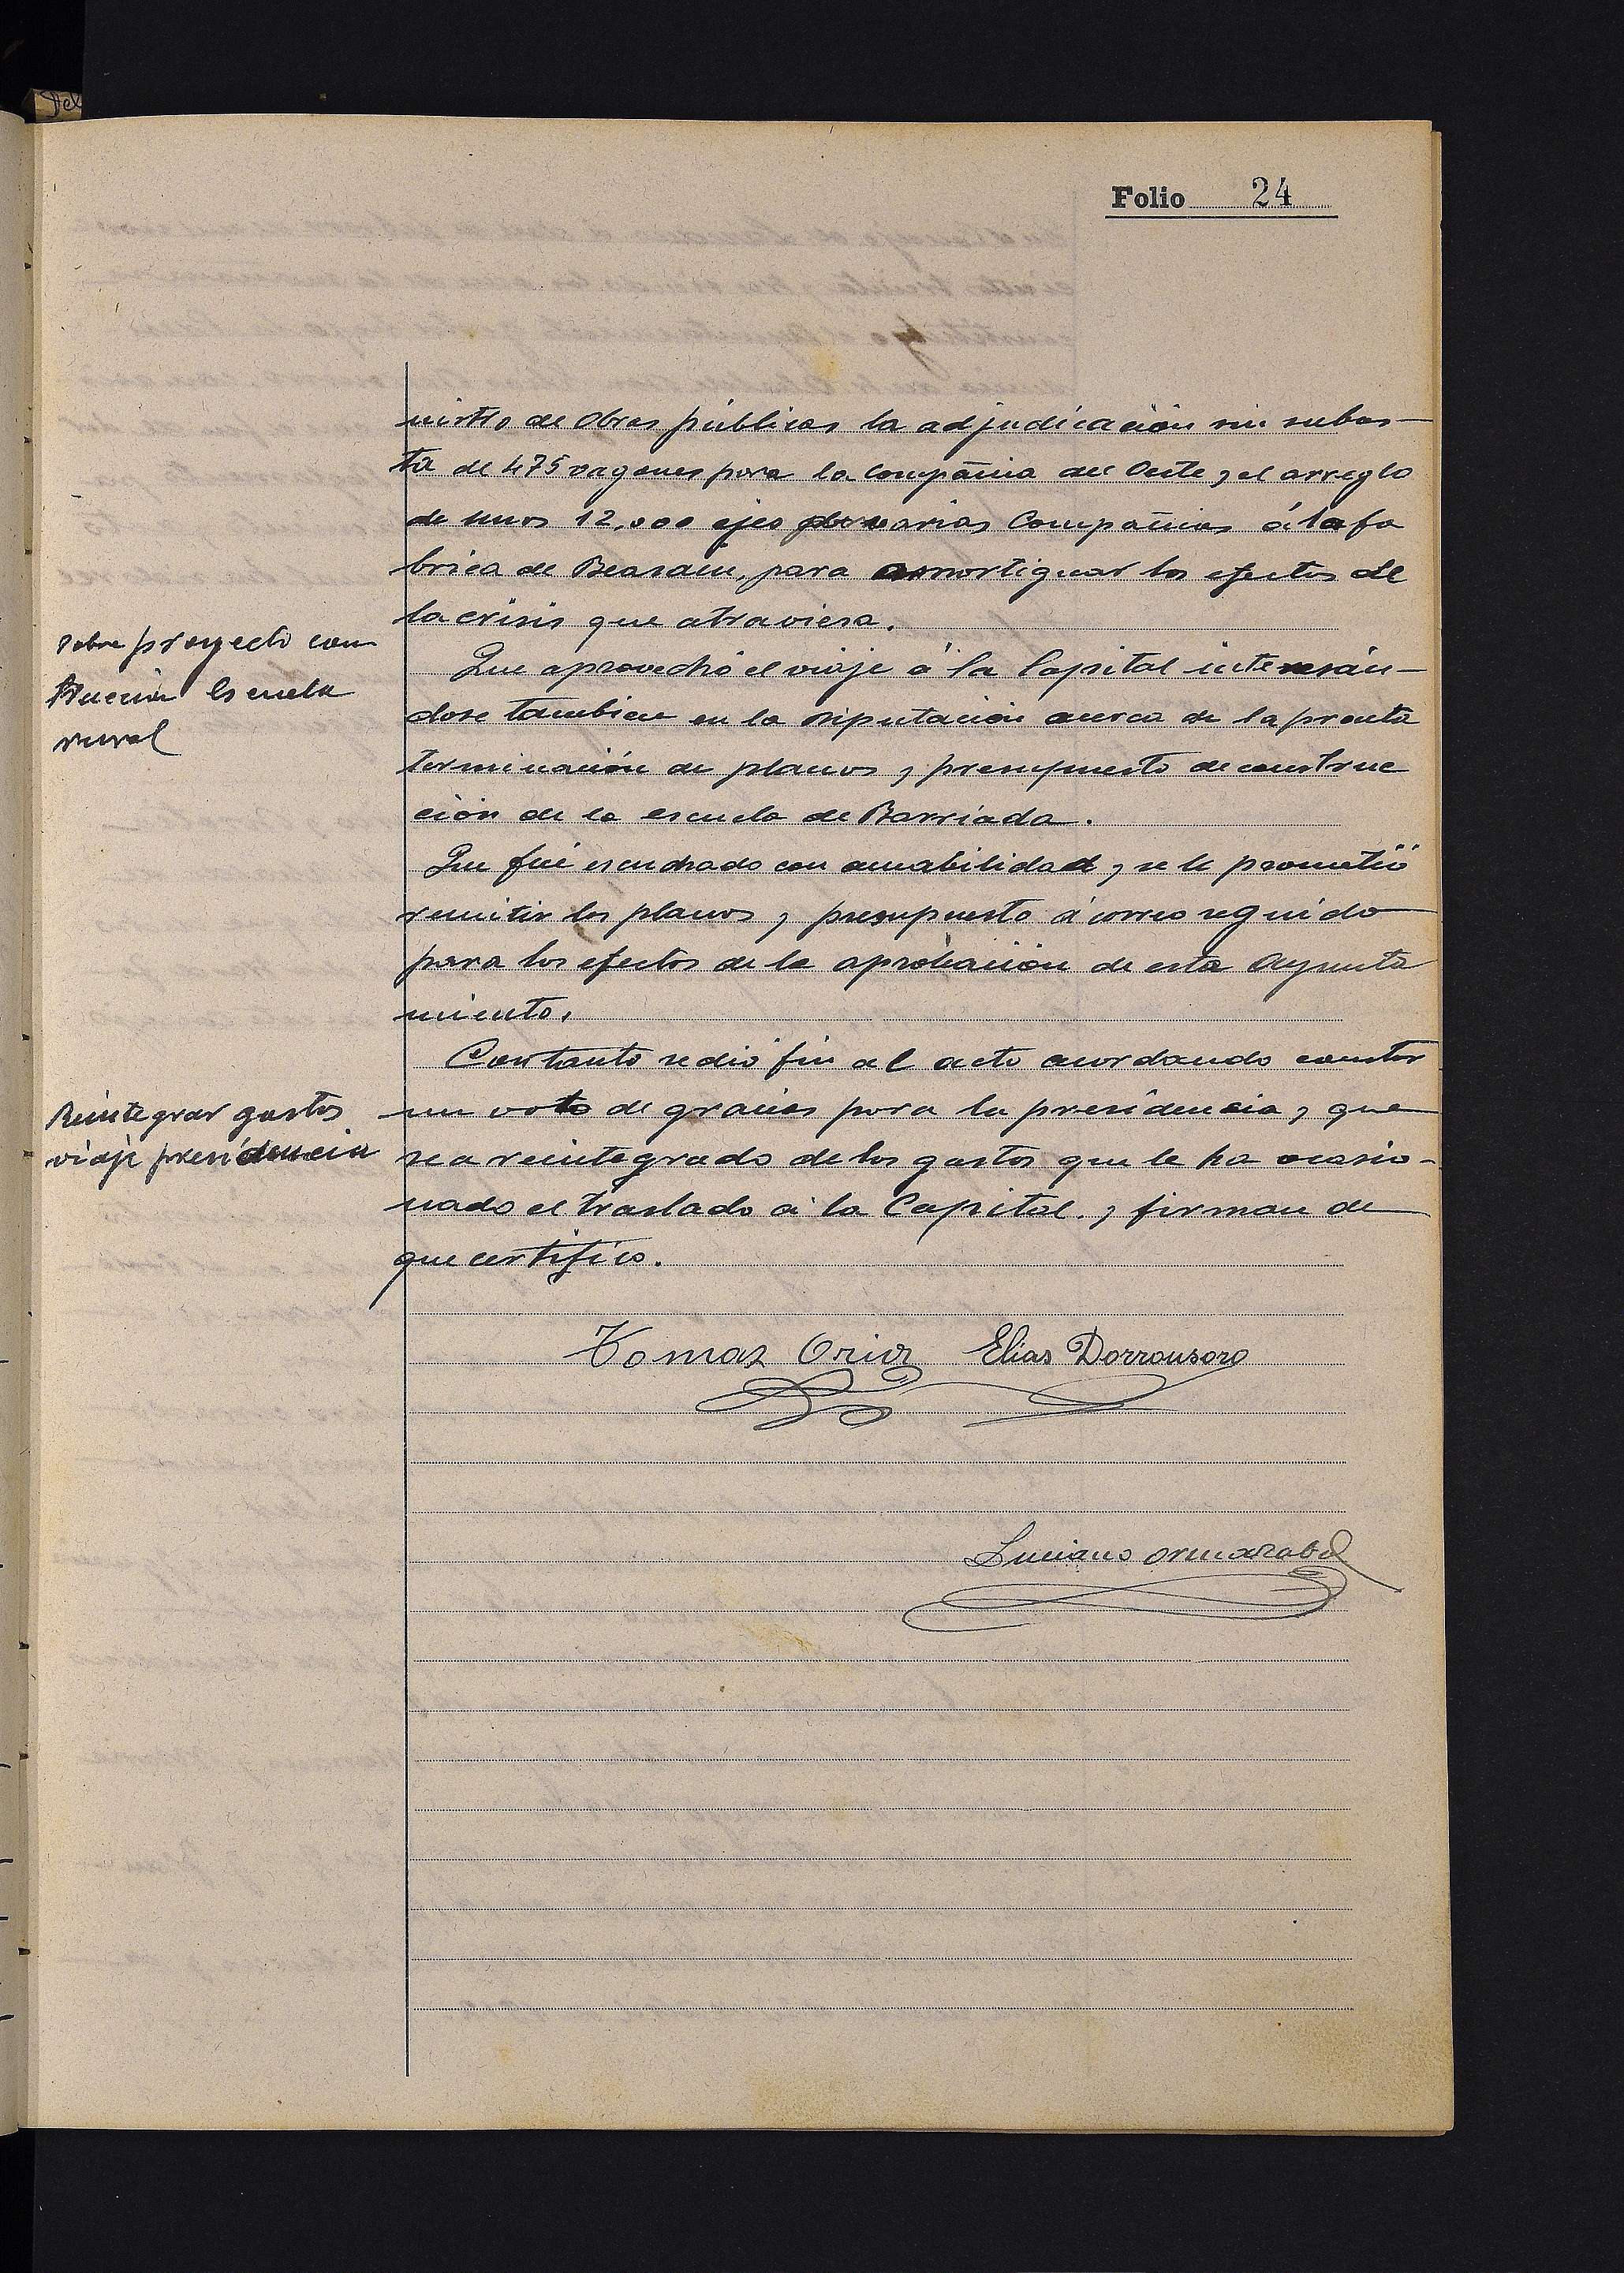 Folio 24
nistro de Obras públicas la adjudicación sin subas-
ta de 475 vagones para la Compañia del Oeste y el arreglo
de unos 12,000 ejes de varias Compañias á la fa
brica de Beasain, para amortiguar los efectos de
la crisis que atraviesa.
Sobre proyecto cons
trucción Escuela
rural
Que aprovechó el viaje á la Capital interesán-
dose tambien en la Diputación acerca de la pronta
terminación de planos y presupuesto de construc
ción de la escuela de Barriada.
Que fué escuchado con amabilidad y se le prometió
remitir los planos y presupuesto á correo seguido
para los efectos de la aprobación de esta Ayunta
miento.
Con tanto se dió fin al acto acordando constar
Reintegrar gastos
viaje presidencia
un voto de gracias para la presidencia y que
sea reintegrado de los gastos que le ha ocasio-
nado el traslado á la Capital. y firman de
que certifico.
Tomas Oria Elias Dorronsoro
Luciano Ormazabal